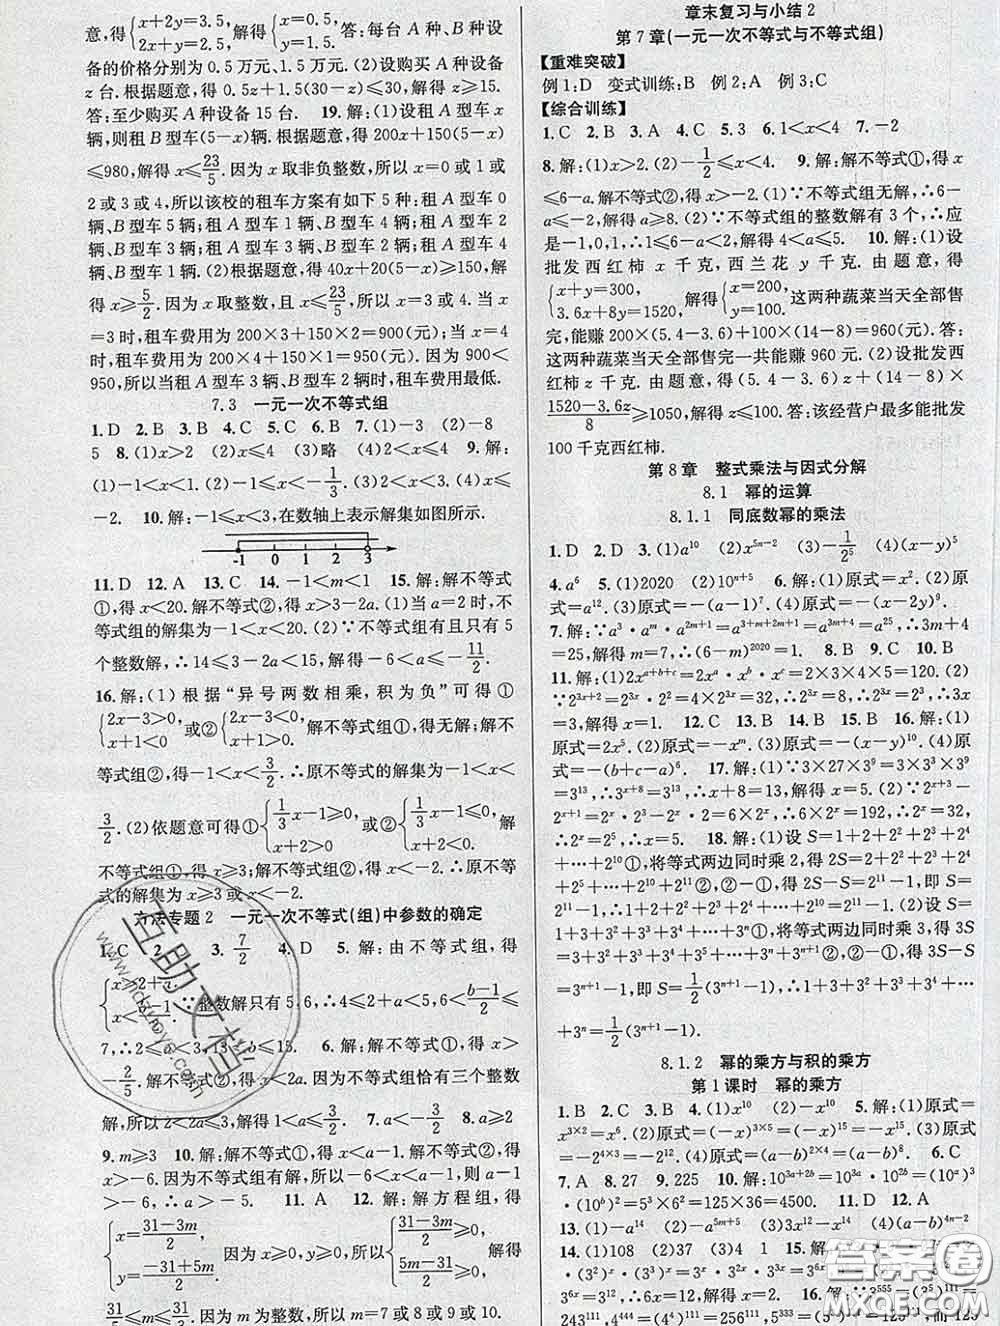 意,得{x+2y=3.5, 2x+y=2.5. 解得{x=0.5, y=1.5. 答:每台A种设备、每台B种设
备的价格分别为0.5万元、1.5万元.(2)设购买A种设备
z台.根据题意,得0.5z+1.5(30-z)≤30,解得z≥15.
答:至少购买A种设备15台. 19.解:(1)设租A型车x
辆,则租B型车(5-x)辆.根据题意,得200x+150(5-x)
≤980,解得x≤23/5.因为x取非负整数,所以x=0或1或
2或3或4,所以该校的租车方案有如下5种:租A型车0
辆、B型车5辆;租A型车1辆、B型车4辆;租A型车2
辆、B型车3辆;租A型车3辆、B型车2辆;租A型车4
辆、B型车1辆.(2)根据题意,得40x+20(5-x)≥150,解
得x≥5/2.因为x取整数,且x≤23/5,所以x=3或4.当x
=3时,租车费用为200×3+150×2=900(元);当x=4
时,租车费用为200×4+150=950(元).因为900<
950,所以当租A型车3辆、B型车2辆时,租车费用最低.
7.3 一元一次不等式组
1.D 2.B 3.B 4.C 5.C 6.B 7.(1)-3 (2)-8
5 8.(1)x>2 (2)x≤4 (3)略 (4)2<x≤4 9.解:
(1)-1<x<2. (2)-1<x≤2. (3)x≤4. (4)x≤
-2. 10.解:-1≤x<3,在数轴上表示解集如图所示.
-1 0 1 2 3
11.D 12.A 13.C 14.-1<m<1 15.解:解不等式
①,得x<20.解不等式②,得x>3-2a.(1)当a=2时,不
等式组的解集为-1<x<20.(2)∵不等式组有且只有5
个整数解,∴14≤3-2a<15,∴-6<a≤-11/2.
16.解:(1)根据“异号两数相乘,积为负”可得①
{2x-3>0, x+1<0 或②{2x-3<0, x+1>0. 解不等式组①,得无解;解不
等式组②,得-1<x<3/2.∴原不等式的解集为-1<x<
3/2.(2)依题意可得①{1/3x-1≥0, x+2>0 或②{1/3x-1≤0, x+2<0. 解
不等式组①,得x≥3;解不等式组②,得x<-2.∴原不等
式的解集为x≥3或x<-2.
方法专题2 一元一次不等式(组)中参数的确定
1.C 2. 3.7/2 4.D 5.解:由不等式组,得
∵整数解只有5,6,∴4≤2+a<5,6<(b-1)/2≤
7,∴2≤a<3,13<b≤15. 6.解:解不等式①,得x>
-2/5.解不等式②,得x<2a.因为不等式组恰有三个整数
解,所以2<2a≤3,解得1<a≤3/2. 7.a<2 8.a≥2
9.m≥3 10.解:解不等式①,得x<a-1.解不等式②,得x
>-6.因为不等式组有解,所以-6<x<a-1,则a-1
>-6,∴a>-5. 11.A 12.解:解方程组,得
{x=(31-3m)/2, y=(-31+5m)/2. 因为x≥0,y≥0,所以{(31-3m)/2≥0, (5m-31)/2≥0, 解得
31/5≤m≤31/3.因为m为整数,所以m=7或8或9或10.
章末复习与小结2
第7章(一元一次不等式与不等式组)
【重难突破】
例1:D 变式训练:B 例2:A 例3:C
【综合训练】
1.C 2.B 3.A 4.C 5.3 6.1<x<4 7.-2
8.解:(1)x>2.(2)-1/2≤x<4. 9.解:解不等式①,得x
≤6-a.解不等式②,得x>-2.(1)∵不等式组无解,∴6
-a≤-2,解得a≥8.(2)∵不等式组的整数解有3个,∴应
是-1,0,1,∴1≤6-a<2,解得4<a≤5. 10.解:(1)设
批发西红柿x千克,西兰花y千克.由题意,得
{x+y=300, 3.6x+8y=1520, 解得{x=200, y=100. 这两种蔬菜当天全部售
完,能赚200×(5.4-3.6)+100×(14-8)=960(元).答:
这两种蔬菜当天全部售完一共能赚960元.(2)设批发西
红柿z千克.由题意,得(5.4-3.6)z+(14-8)×
(1520-3.6z)/8≥1050,解得z≤100.答:该经营户最多能批发
100千克西红柿.
第8章 整式乘法与因式分解
8.1 幂的运算
8.1.1 同底数幂的乘法
1.D 2.D 3.(1)a¹⁰ (2)x⁵ᵐ⁻² (3)-1/2⁵ (4)(x-y)⁵
4.a⁶ 5.(1)2020 (2)10ⁿ⁺⁵ 6.解:(1)原式=x².(2)原
式=a¹².(3)原式=-(a-1)⁷.(4)原式=-(x-2y)⁹.
7.解:∵a³·aᵐ·a²ᵐ⁺¹=a³⁺ᵐ⁺²ᵐ⁺¹=a³ᵐ⁺⁴=a²⁵,∴3m+4
=25,解得m=7,∴(6-m)²⁰²⁰=1. 8.B 9.C 10.B
11.解:(1)2xᵃ⁺ᵇ⁺ᶜ=2xᵃ·xᵇ·xᶜ=2×4×5×6=240.(2)
∵2³ˣ⁺²=2³ˣ·2²=4×2³ˣ=32,∴2³ˣ=8=2³,∴3x
=3,解得x=1. 12.C 13.B 14.B 15.B 16.解:(1)
原式=2x⁵.(2)原式=-xᵐ.(3)原式=-(x-y)¹⁰.(4)原
式=-(b+c-a)⁶. 17.解:(1)∵3×27×3⁹=3×3³×3⁹
=3¹³,∴3ˣ⁺⁸=3¹³,∴x+8=13,解得x=5.(2)∵2ˣ⁺³-
2ˣ⁺¹=2ˣ·2³-2ˣ·2=6×2ˣ,∴6×2ˣ=192,∴2ˣ=32,
∴2ˣ=2⁵,∴x=5. 18.解:(1)设S=1+2+2²+2³+2⁴
+…+2¹⁰①,将等式两边同时乘2,得2S=2+2²+2³+2⁴
+…+2¹⁰+2¹¹②.②-①,得2S-S=S=2¹¹-1,即
1+2+2²+2³+2⁴+…+2¹⁰=2¹¹-1.(2)设S=1+3+3²
+3³+3⁴+…+3ⁿ①,将等式两边同时乘3,得3S=
3+3²+3³+3⁴+…+3ⁿ+3ⁿ⁺¹②.②-①,得3S-S=2S=
3ⁿ⁺¹-1,即S=1/2(3ⁿ⁺¹-1),则1+3+3²+3³+3⁴+…
+3ⁿ=1/2(3ⁿ⁺¹-1).
8.1.2 幂的乘方与积的乘方
第1课时 幂的乘方
1.B 2.B 3.B 4.(1)x¹⁰ (2)-x¹⁰ 5.解:(1)原式=
x³ˣ²=x⁶.(2)原式=(-x)³ˣ⁵=(-x)¹⁵=-x¹⁵.(3)原式
=-2⁴ˣ³=-2¹².(4)原式=(a-b)²ˣ⁴=(a-b)⁸. 6.C
7.A 8.27 9.225 10.解:10³ᵃ⁺²ᵇ=10³ᵃ·10²ᵇ=(10ᵃ)³
·(10ᵇ)²=5³×6²=125×36=4500. 11.D 12.A
13.(1)-a¹⁴ (2)a⁵ᵐ⁺⁵ (3)2x¹⁴ (4)(a-b)⁴ⁿ⁻²
14.(1)108 (2)37 (3)4 1
243¹¹¹,4⁴⁴⁴=(4⁴)¹¹¹=256¹¹¹,
互助文档
www.hdzhoye.com
答案圈
MXQE.COM